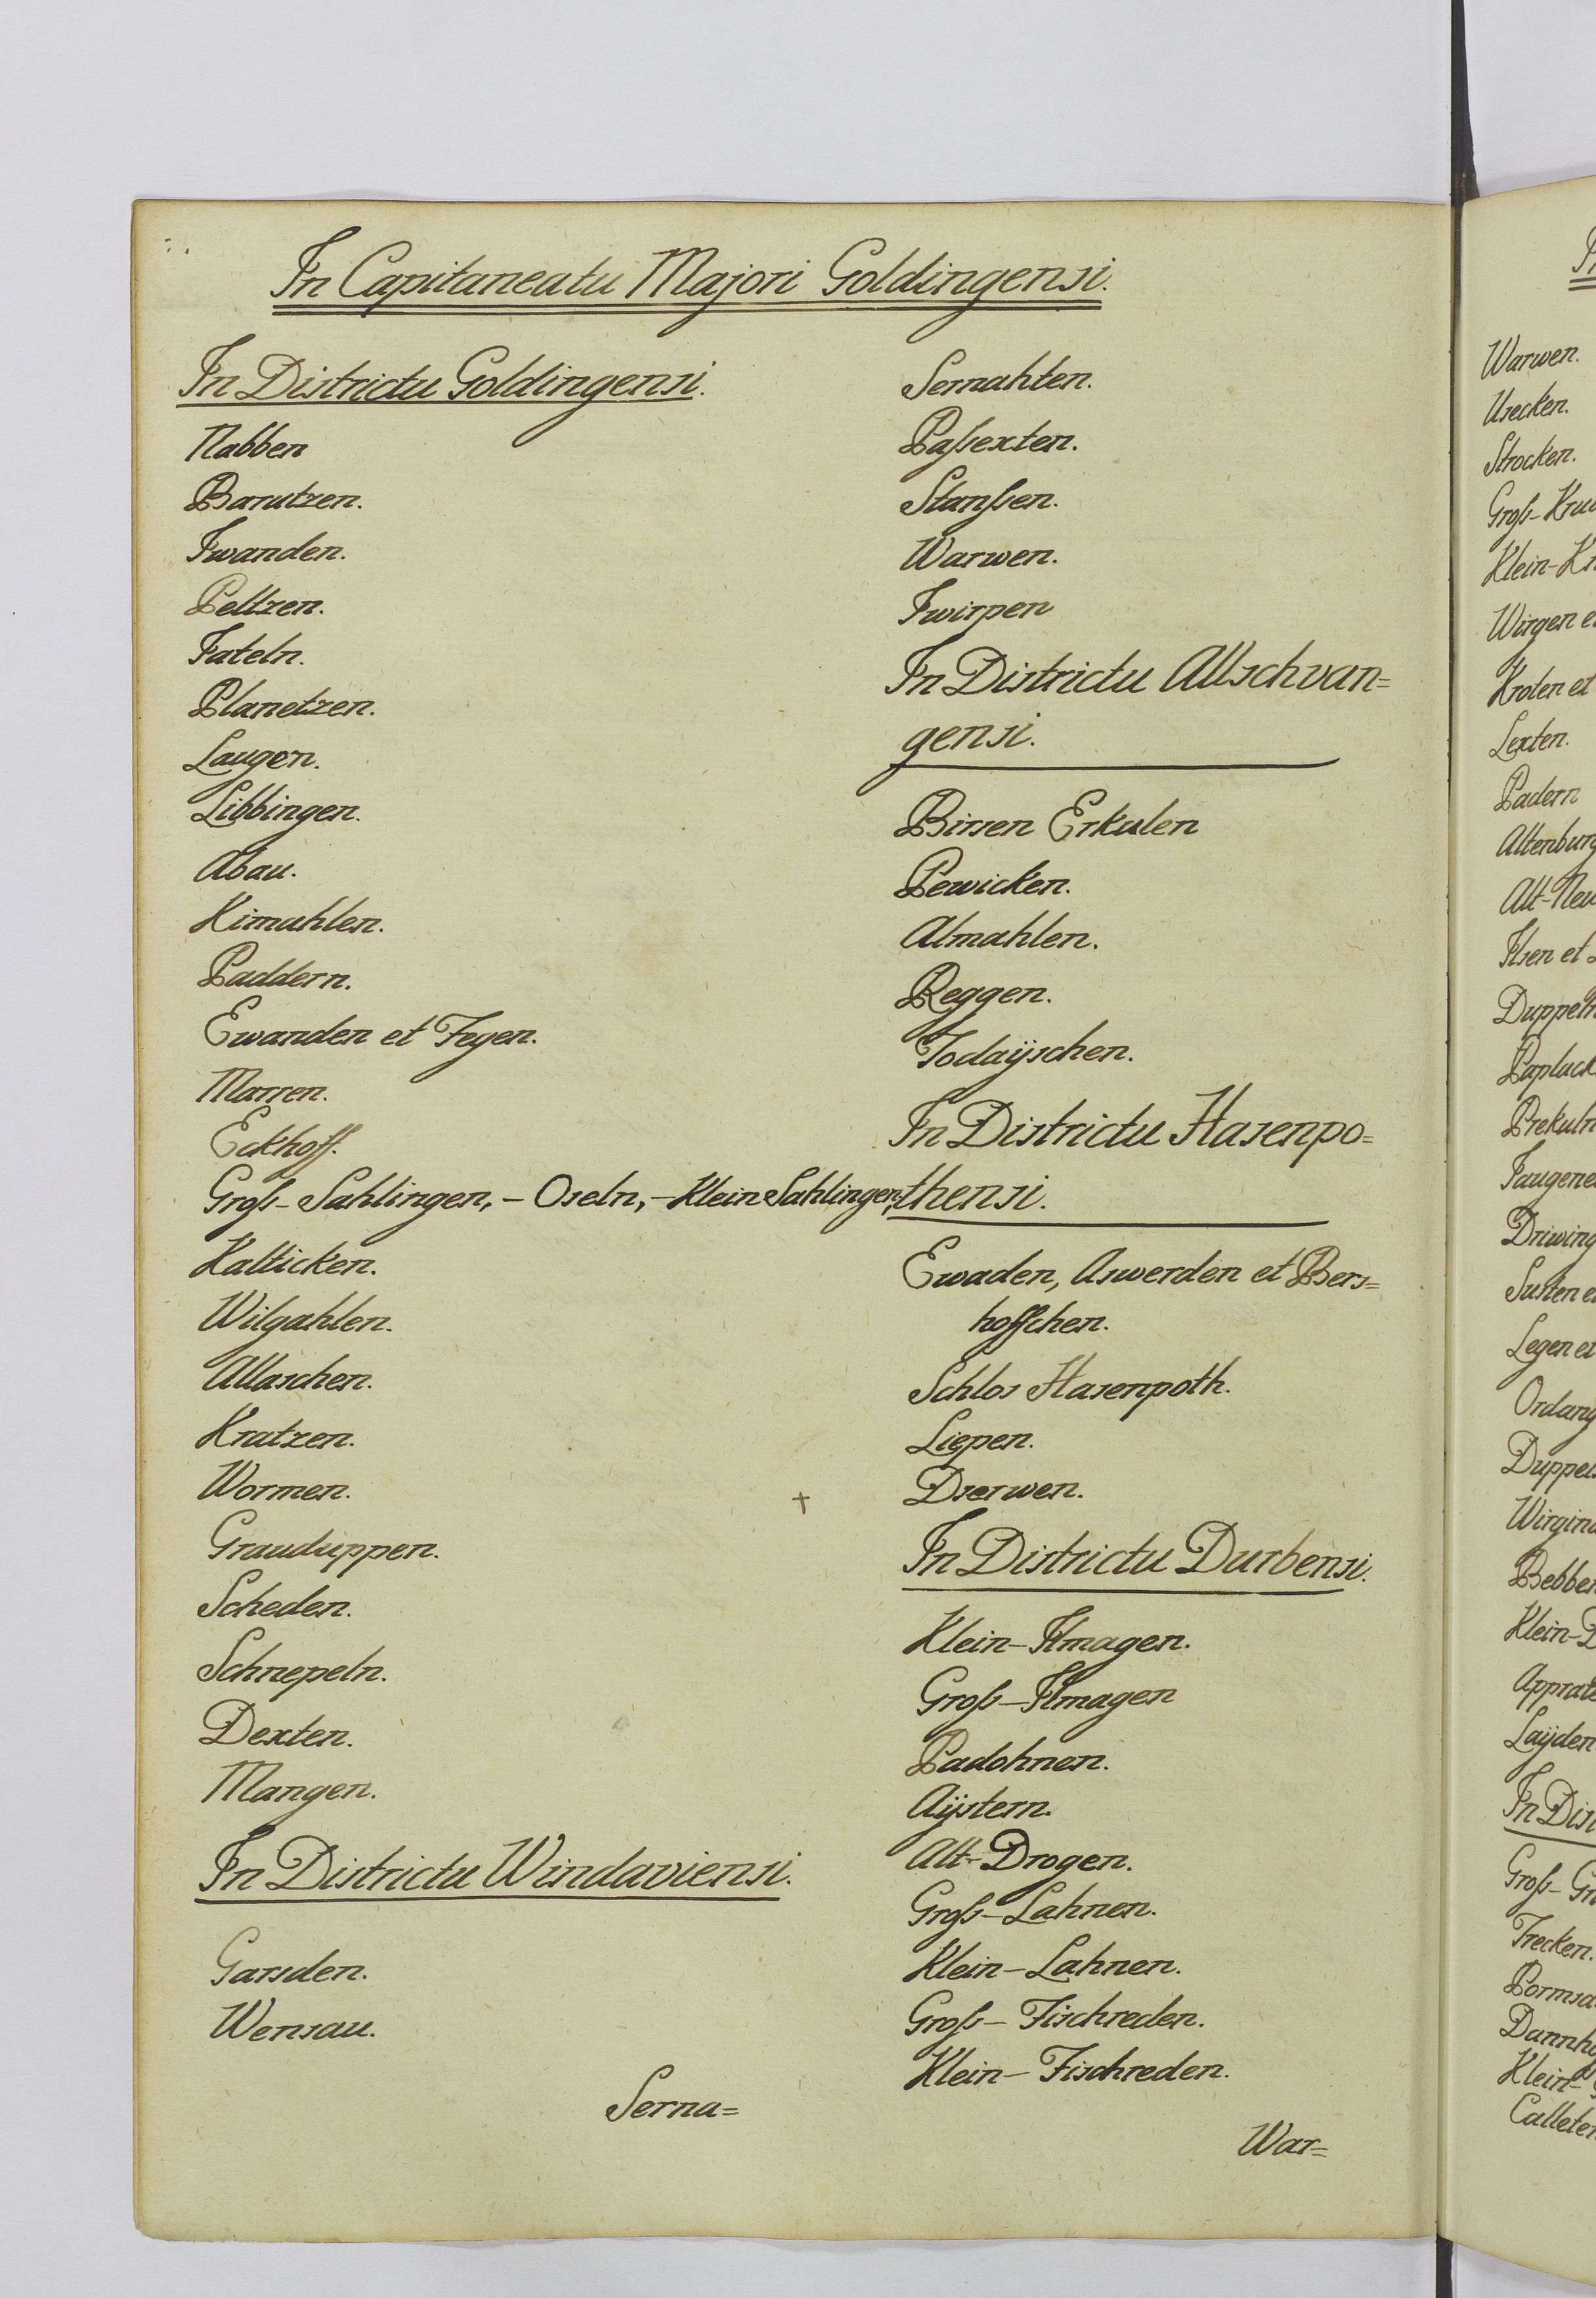 In Capitaneatu Majori Goldingensi.
In Districtu Goldingensi.
Nabben
Barutzen.
Iwanden.
Peltzen.
Fateln.
Planetzen.
Laugen.
Libbingen.
Abau.
Kimahlen.
Paddern.
Ewanden et Fegen.
Marren.
Eckhoff.
Groß-Sahlingen, - Oseln, - Klein Sahlingen,
Kalticken.
Wilgahlen.
Allaschen.
Kratzen.
Wormen.
Grauduppen.
Scheden.
Schnepeln.
Dexten.
Mangen.
In Districtu Windaviensi.
Garsden.
Wensau.
Serna=
Sernahten.
Paßexten.
Stanßen.
Warwen.
Iwirpen
In Districtu Allschvan=
gensi.
Birsen Erkulen
Pewicken.
Almahlen.
Reggen.
Todaÿschen.
In Districtu Hasenpo=
thensi.
Ewaden, Aswerden et Bers=
hoffchen.
Schlos Hasenpoth.
Liepen.
Dserwen.
In Districtu Durbensi.
Klein-Ilmagen.
Groß-Ilmagen
Padohnen.
Aÿstern.
Alt-Drogen.
Groß-Lahnen.
Klein-Lahnen.
Groß-Fischreden.
Klein-Fischreden.
War=
Warwen.
Usecken.
Strocken.
Groß-
Klein-
Wirgen
Kroten et
Lexten.
Padern
Ilsen et
Susten
Legen et
Laÿden
Groß-
Trecken.
Klein-